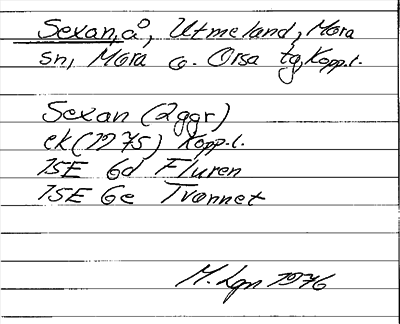 Sexan, å, Utmeland, Mora
sn, Mora o. Orsa tg, Kopp.l.
Sexan (2ggr)
ek (1975) Kopp.l.
15E 6d Fluren
15E 6e Tvännet
M. Lgn 1976